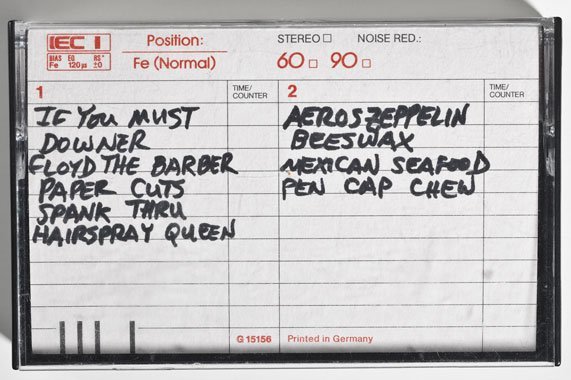 IEC I
BIAS EQ RS*
Fe 120µs ±0
Position:
Fe (Normal)
STEREO □ NOISE RED.:
60 □ 90 □
1
TIME/
COUNTER
IF YOU MUST
DOWNER
FLOYD THE BARBER
PAPER CUTS
SPANK THRU
HAIRSPRAY QUEEN
2
TIME/
COUNTER
AEROSZEPPELIN
BEESWAX
MEXICAN SEAFOOD
PEN CAP CHEW
G 15156 Printed in Germany